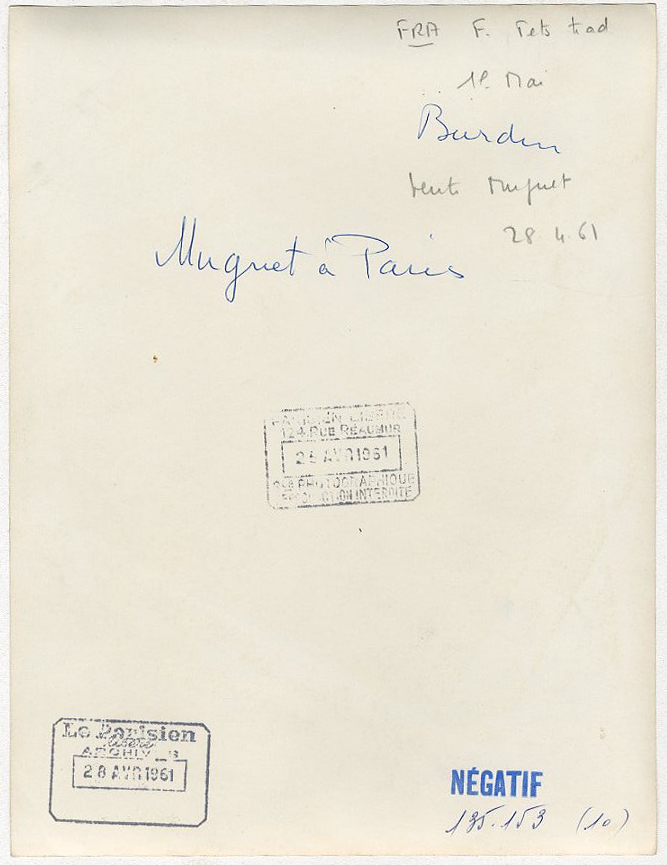 FRA F. Fets trad
1er Mai
Burdin
Vente Muguet
28.4.61
Muguet à Paris
PARISIEN LIBERE
124 RUE REAUMUR
AVR 1961
PHOTOGRAPHIQUE
REPRODUCTION INTERDITE
Le Parisien
libéré
ARCHIVES
28 AVR 1961
NÉGATIF
135.153 (10)